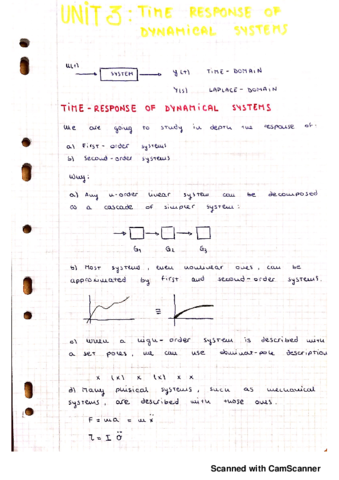 UNIT 3: TIME RESPONSE OF
DYNAMICAL SYSTEMS
u(t)
SYSTEM
y(t) TIME-DOMAIN
Y(s) LAPLACE-DOMAIN
TIME-RESPONSE OF DYNAMICAL SYSTEMS
We are going to study in depth the response of:
a) First-order systems
b) Second-order systems
Why:
a) Any n-order linear system can be decomposed
as a cascade of simpler system:
G1 G2 G3
b) Most systems, even nonlinear ones, can be
approximated by first and second-order systems.
≅
c) When a high-order system is described with
a set poles, we can use dominat-pole description
x (x) x (x) x x
d) Many phisical systems, such as mechanical
systems, are described with those ones.
F = ma = m ẍ
τ = I σ̈
Scanned with CamScanner